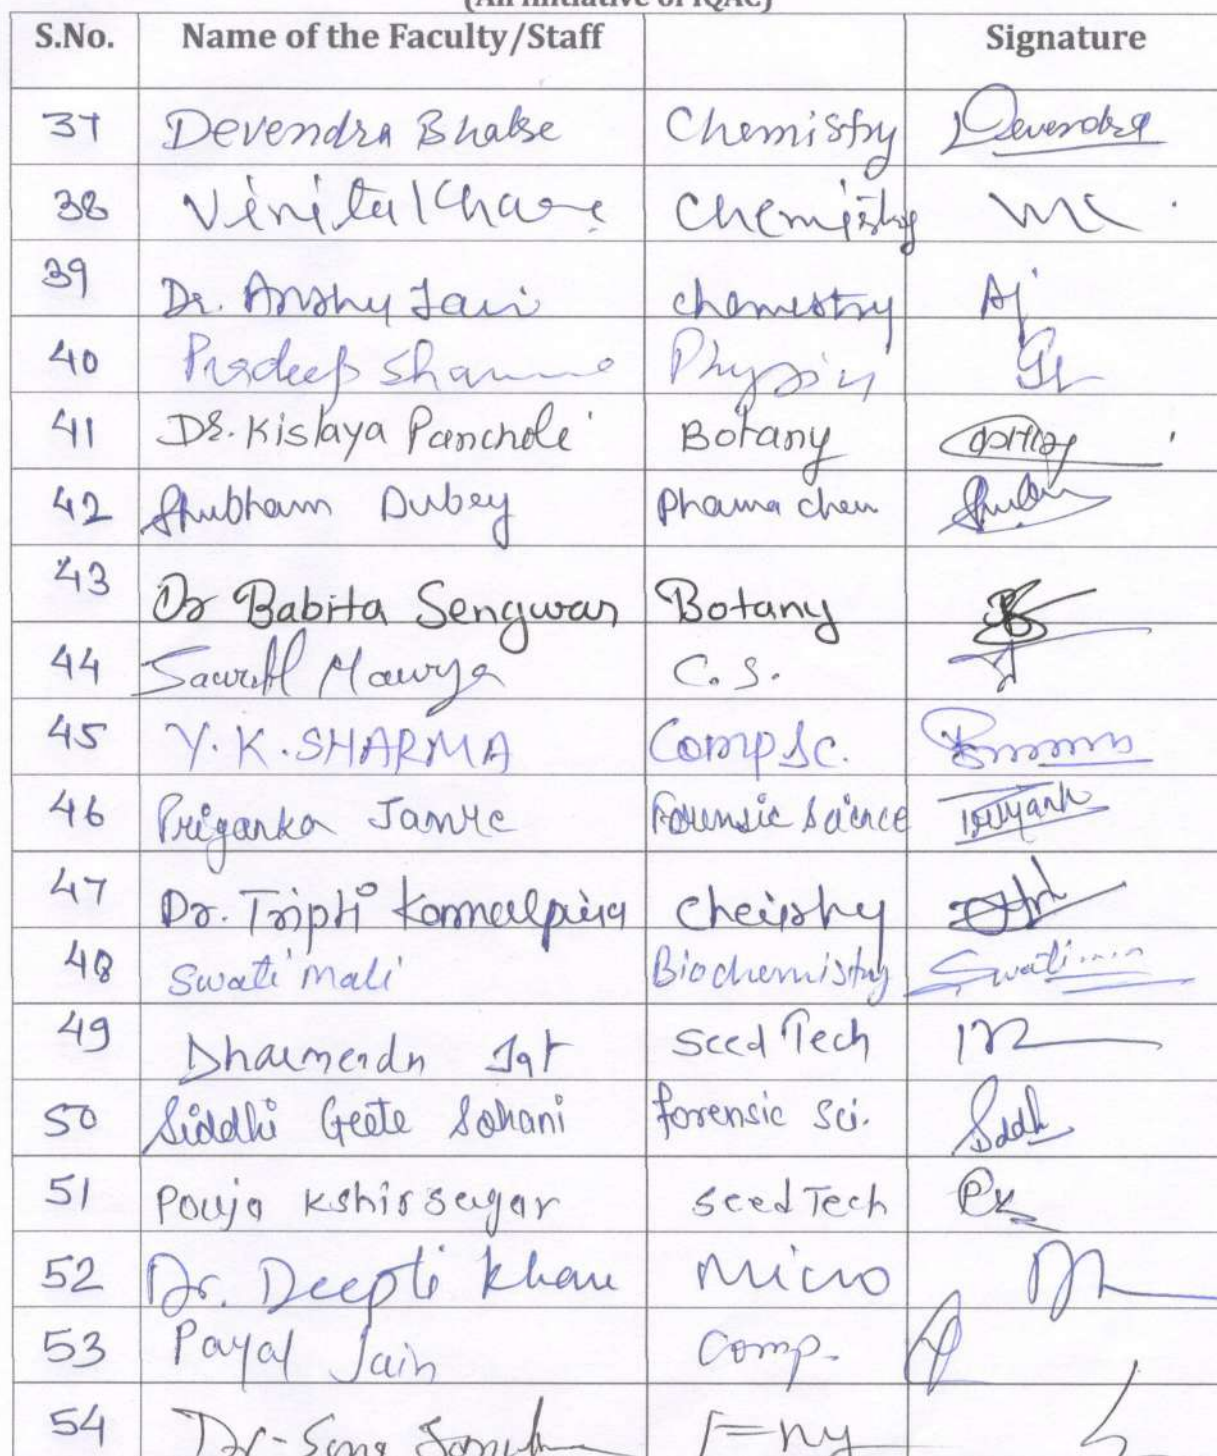 (An initiative of IQAC)
S.No. Name of the Faculty/Staff Signature
37 Devendra Bhakse Chemistry Devendra
38 Vinita Khare Chemistry
39 Dr. Anshu Jain chemestry AJ
40 Pradeep Sharma Physics
41 Dr. Kislaya Pancholi Botany
42 Shubham Dubey Phama chem Shubham
43 Dr Babita Sengwar Botany
44 Saurabh Maurya C.S.
45 Y.K.SHARMA Comp Sc.
46 Priyanka Jamre Forensic Science Priyank
47 Dr. Tripti Cheistry
48 Swati Mali Biochemistry Swati
49 Dharmendra Jat Seed Tech
50 Siddhi Geete Sohani forensic Sci. Siddh
51 Pouja Kshirsagar seed Tech PK
52 Dr. Deepti Khare Micro
53 Payal Jain Comp.
54 Dr-